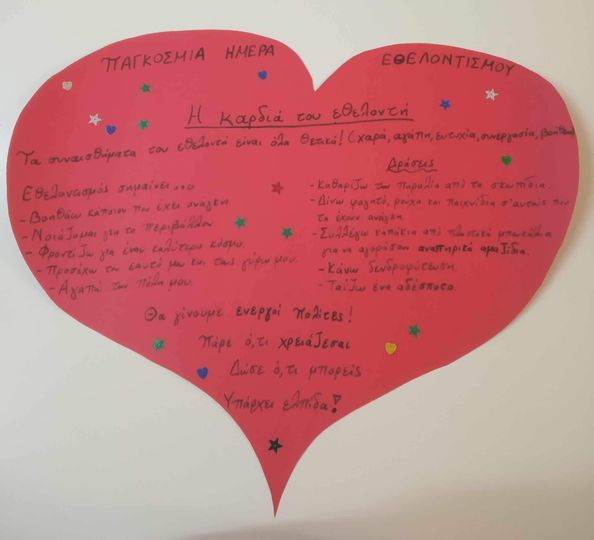 ΠΑΓΚΟΣΜΙΑ ΗΜΕΡΑ ΕΘΕΛΟΝΤΙΣΜΟΥ
Η καρδιά του εθελοντή
Τα συναισθήματα του εθελοντή είναι όλα θετικά! (χαρά, αγάπη, ευτυχία, συνεργασία, βοήθεια)
Εθελοντισμός σημαίνει...
- Βοηθάω κάποιον που έχει ανάγκη.
- Νοιάζομαι για το περιβάλλον
- Φροντίζω για έναν καλύτερο κόσμο.
- Προσέχω τον εαυτό μου και τους γύρω μου.
- Αγαπώ την πόλη μου.
Δράσεις
- Καθαρίζω την παραλία από τα σκουπίδια.
- Δίνω φαγητό, ρούχα και παιχνίδια σ'αυτούς που
τα έχουν ανάγκη.
- Συλλέγω καπάκια από πλαστικά μπουκάλια
για να αγοράσουν αναπηρικά αμαξίδια.
- Κάνω δενδροφύτευση.
- Ταΐζω ένα αδέσποτο.
Θα γίνουμε ενεργοί πολίτες!
Πάρε ό,τι χρειάζεσαι
Δώσε ό,τι μπορείς
Υπάρχει ελπίδα!